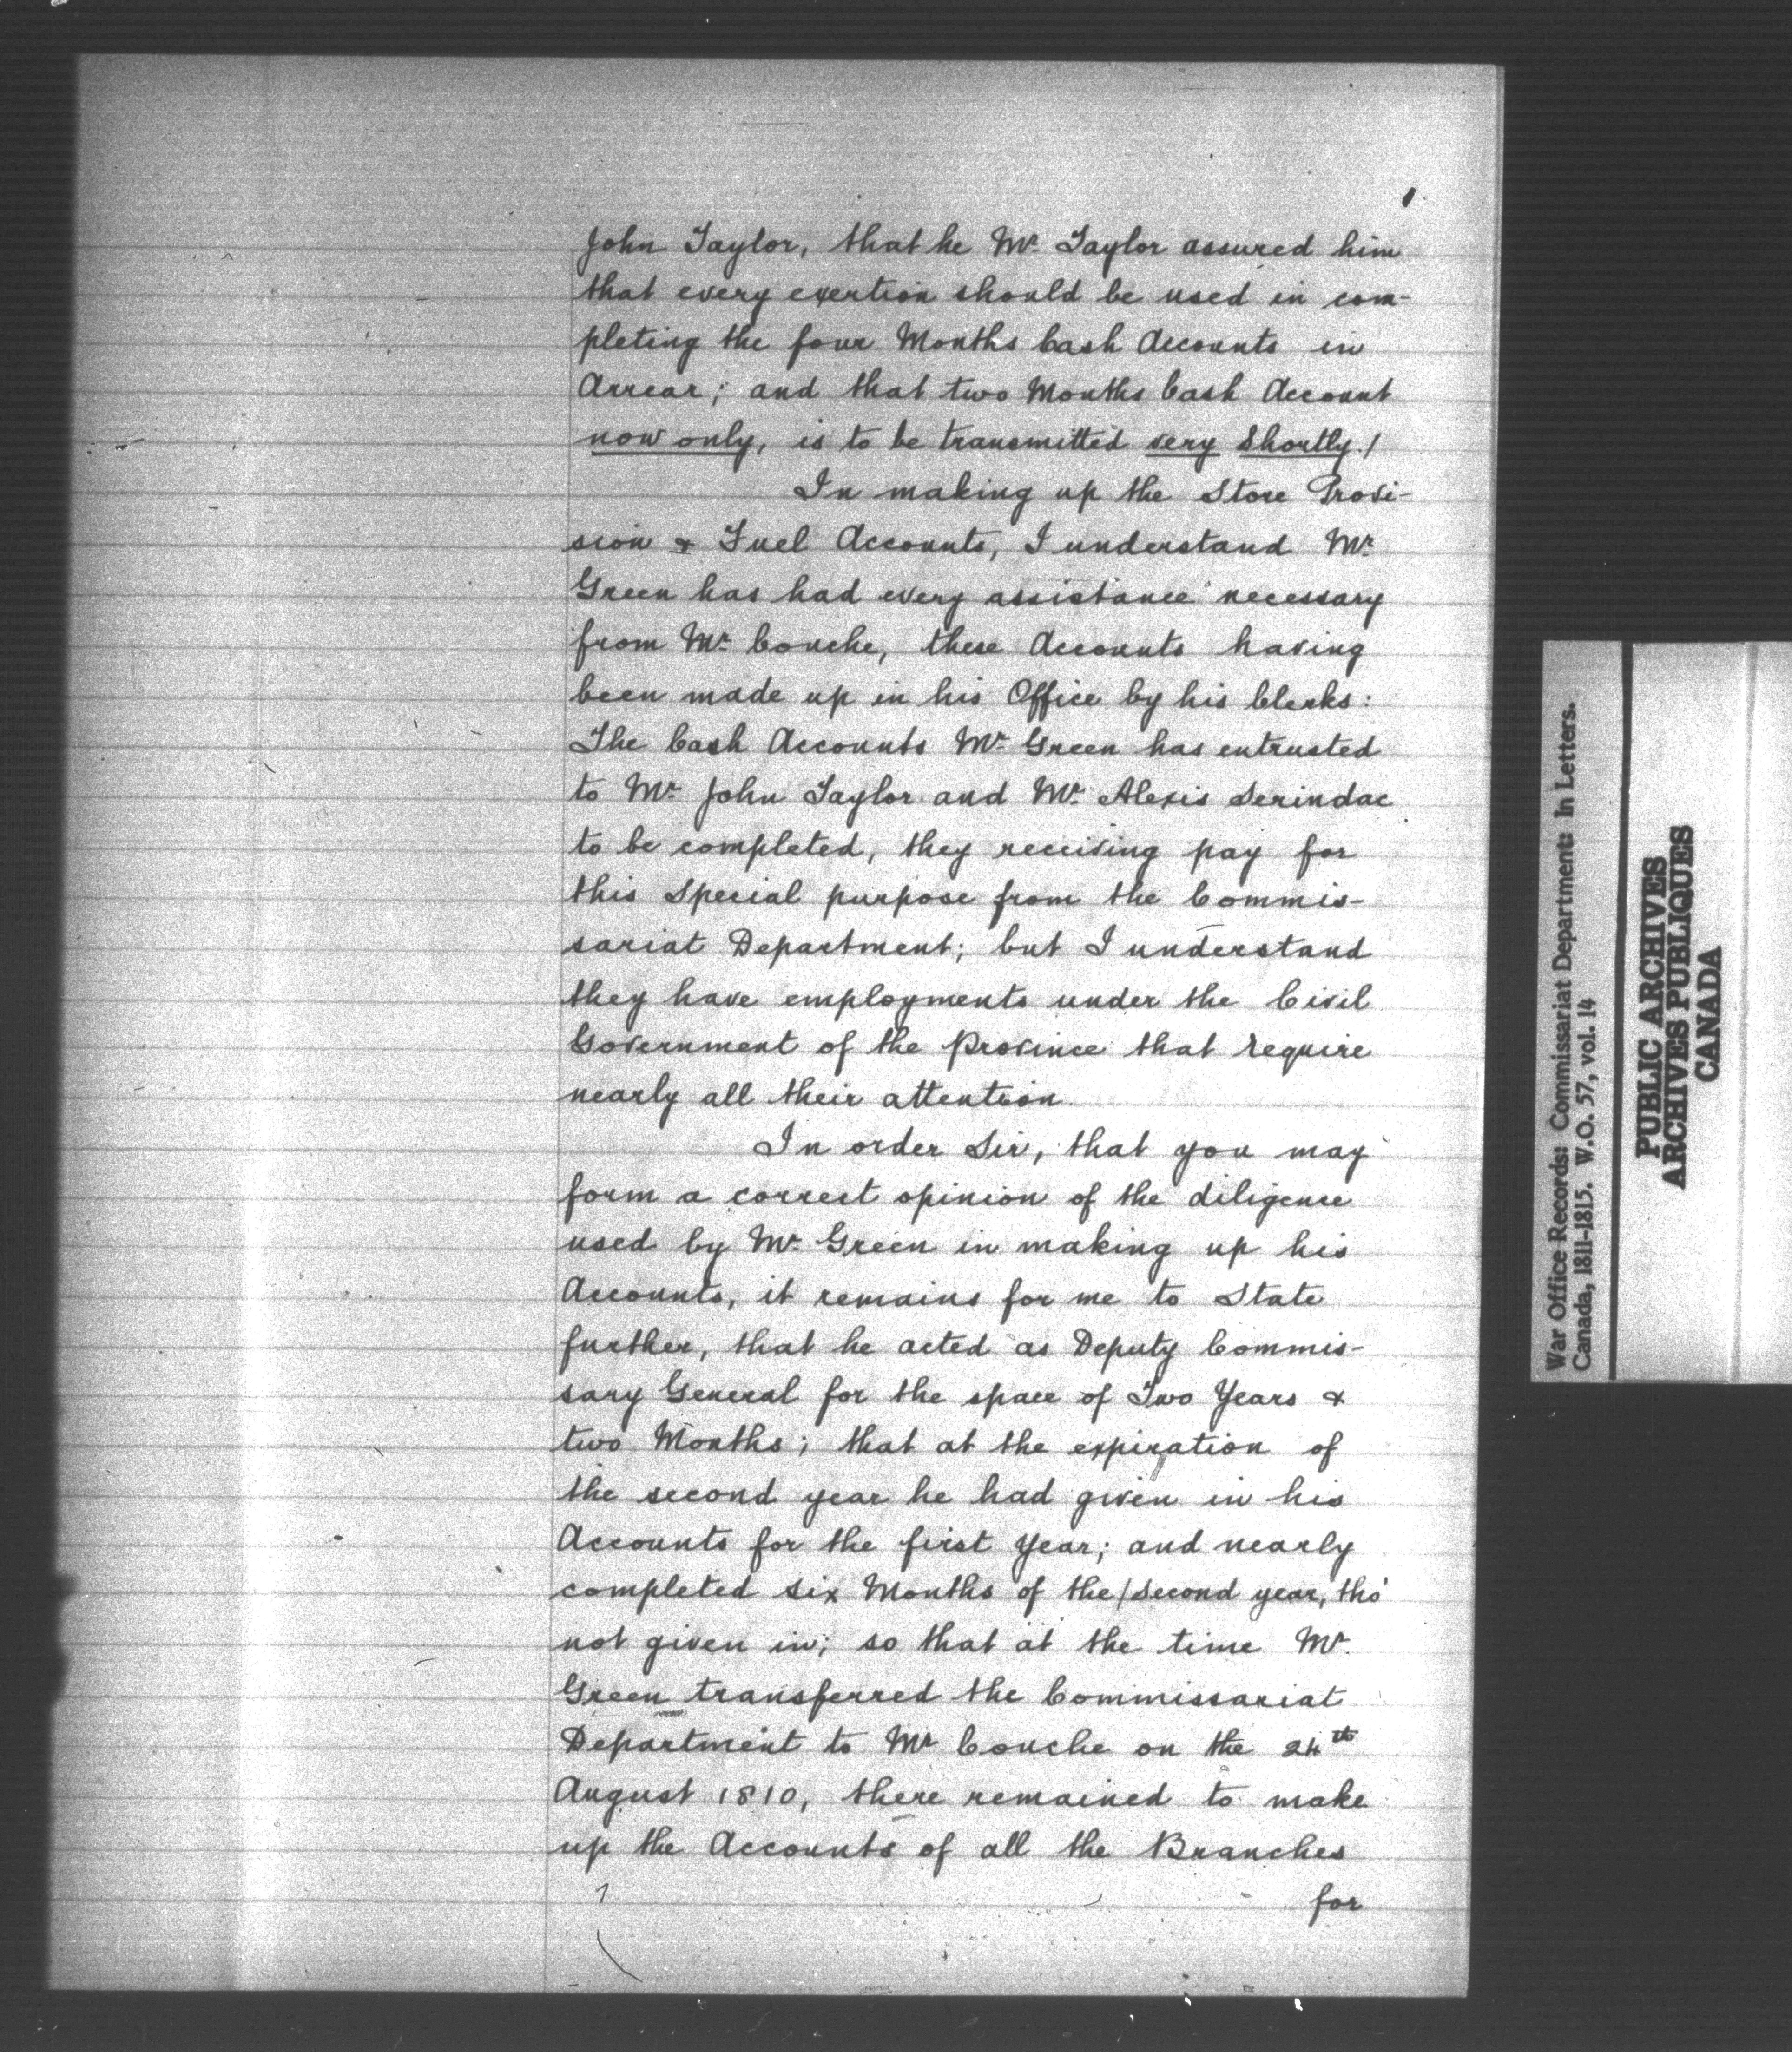 John Taylor, that he Mr. Taylor assured him
that every exertion should be used in com-
pleting the four Months Cash Accounts in
Arrear; and that two Months Cash Account
now only, is to be transmitted very Shortly./
In making up the Store Provi-
sion & Fuel Accounts, I understand Mr.
Green has had every assistance necessary
from Mr. Couche, these Accounts having
been made up in his Office by his Clerks:
The Cash Accounts Mr. Green has entrusted
to Mr. John Taylor and Mr. Alexis Serindac
to be completed, they receiving pay for
this Special purpose from the Commis-
sariat Department; but I understand
they have employments under the Civil
Government of the Province that require
nearly all their attention.
In order Sir, that you may
form a correct opinion of the diligence
used by Mr. Green in making up his
Accounts, it remains for me to State
further, that he acted as Deputy Commis-
sary General for the space of Two Years &
two Months; that at the expiration of
the second year he had given in his
Accounts for the first Year; and nearly
completed six Months of the/second year, tho'
not given in; so that at the time Mr.
Green transferred the Commissariat
Department to Mr Couche on the 24th
August 1810, there remained to make
up the Accounts of all the Branches
for
War Office Records: Commissariat Department: In Letters.
Canada, 1811-1815. W.O. 57, vol. 14
PUBLIC ARCHIVES
ARCHIVES PUBLIQUES
CANADA